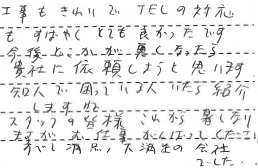 工事もきれいで TELの対応
も すばやく とても良かったです
今後どこかが悪くなったら
貴社に依頼しようと思います
知人で困っている人いたら紹介
しますので
スタッフの皆様 これから暑くなり
ますが お仕事がんばってください
すべて満足，大満足の会社
でした…